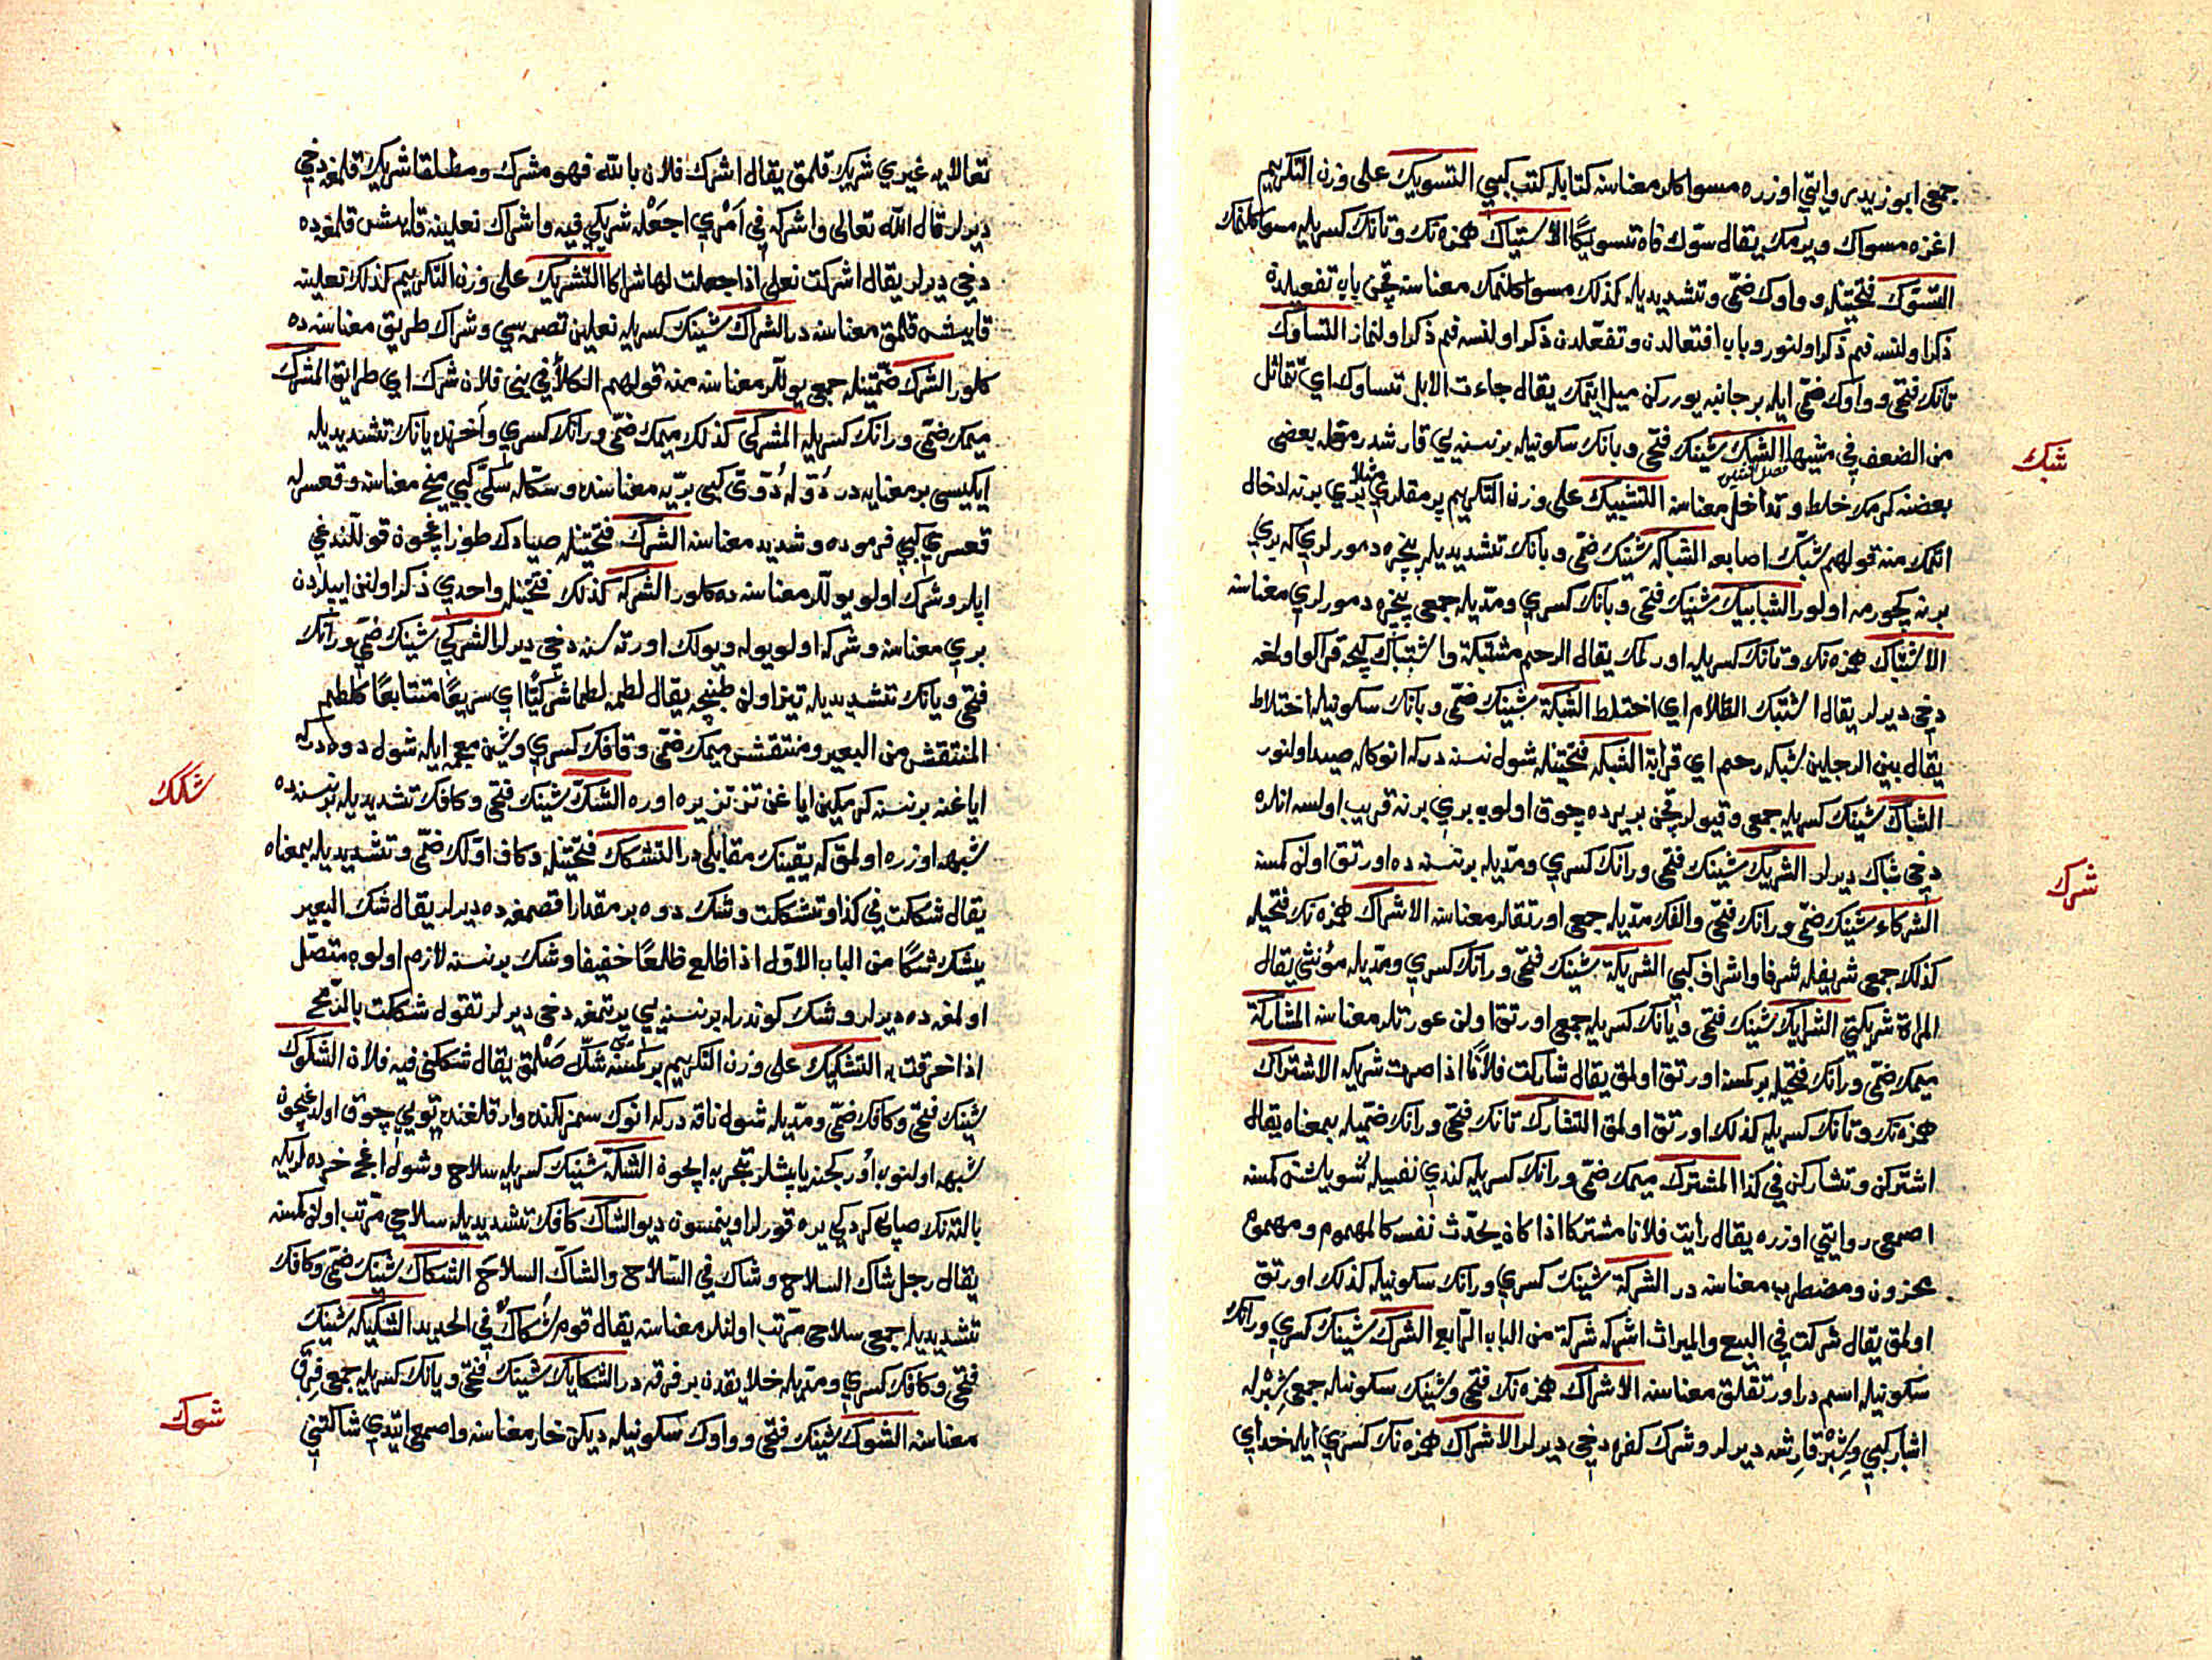 جمعی ابو زید روایتی اوزره مسواکلر معناسنه کتابله کتب کبی التسویك علی وزن التکریم
اغزه مسواك ویرمك یقال سوّك فاه تسویکًا الاستیاك همزه نك و تانك کسریله مسواکلنمك
التسوّك فتحتیله و واوك ضمّی و تشدیدیله کذلك مسواکلنمك معناسنه قچن باب تفعیلدن
ذکر اولنسه فم ذکر اولنور و باب افتعالدن و تفعّلدن ذکر اولنسه فم ذکر اولنماز التساوك
تانك فتحی و واوك ضمّی ایله بر جانبه یوررکن میل ایتمك یقال جاءت الابل تساوك ای تتمائل
شبك
من الضعف فی مشیها الشبك شینك فتحی و بانك سکونیله بر نسنه یی قارشدرمقله بعضی
فصل الشین
بعضنه کرمك خلط و تداخل معناسنه التشبیك علی وزن التکریم پرمقلری مثلا بری برنه ادخال
اتمك منه قولهم شبّك اصابعه الشباکه شینك ضمّی و بانك تشدیدیله پنجره دمورلری که بری
برنه کچورمه اولور الشبابیك شینك فتحی و بانك کسری و مدّیله جمعی پنجره دمورلری معناسنه
الاشتباك همزه نك و تانك کسریله اورلمك یقال الرحم مشتبکة و اشتباك کیجه قراکو اولمغه
دخی دیرلر یقال اشتبك الظلام ای اختلط الشبکة شینك ضمّی و بانك سکونیله اختلاط
یقال بین الرجلین شبکه رحم ای قرابة الشبکه فتحتیله شول نسنه درکه انوکله صید اولنور
الشباك شینك کسریله جمعی و قیولر قچن بر یرده چوق اولوب بری برنه قریب اولسه انلره
شرك
دخی شباك دیرلر الشریك شینك فتحی و رانك کسری و مدّیله بر نسنه ده اورتق اولن کمسنه
الشرکاء شینك ضمّی و رانك فتحی و الفك مدّیله جمعی اورتقلر معناسنه الاشراك همزه نك فتحیله
کذلك جمعی شریفله شرفا و اشراف کبی الشریکة شینك فتحی و رانك کسری و مدّیله مؤنثی یقال
المراة شریکتی الشرایك شینك فتحی و یانك کسریله جمعی اورتق اولن عورتلر معناسنه المشارکة
میمك ضمّی و رانك فتحیله بر کمسنه اورتق اولمق یقال شارکت فلانًا اذا صرت شریکه الاشتراك
همزه نك و تانك کسریله کذلك اورتق اولمق التشارك تانك فتحی و رانك ضمّیله بمعناه یقال
اشترکن و تشارکن فی کذا المشترك میمك ضمّی و رانك کسریله کندی نفسیله سویلشن کمسنه
اصمعی روایتی اوزره یقال رأیت فلانا مشترکا اذا کان یحدّث نفسه کالمهموم و مهموم
محزون و مضطرب معناسنه در الشرکة شینك کسری و رانك سکونیله کذلك اورتق
اولمق یقال شرکت فی البیع و المیراث اشرکه شرکة من الباب الرّابع الشرك شینك کسری و رانك
سکونیله اسم در اورتقلق معناسنه الاشراك همزه نك فتحی و شینك سکونیله جمعی شِبْرله
اشبار کبی و شِبْر قارشه دیرلر و شرك کفره دخی دیرلر الاشراك همزه نك کسری ایله خدای
تعالایه غیری شریك قلمق یقال اشرك فلان بالله فهو مشرك و مطلقا شریك قلمغه دخی
دیرلر قال الله تعالی و اشرکه فی اَمْری اجعَلْه شریکی فیه و اشراك نعلینه قایش قلمغه ده
دخی دیرلر یقال اشرکت نعلی اذا جعلت لها شراکا التشریك علی وزن التکریم کذلك نعلینه
قایش قلمق معناسنه در الشراك شینك کسریله نعلین تصمه سی و شراك طریق معناسنه ده
کلور الشرك ضمّتیله جمعی یوللر معناسنه منه قولهم الکلأ فی بنی فلان شرك ای طرایق المشرك
میمك ضمّی و رانك کسریله المشرکی کذلك میمك ضمّی و رانك کسری و آخرنده یانك تشدیدیله
ایکیسی بر معنایه در دُوّ له دُوّیّ کبی برّیه معناسنه و سكّله سكّیّ کبی میخ معناسنه و قعسرله
قعسری کبی فرموده و شدید معناسنه الشرك فتحتیله صیادك طوزاغیچون قوللندغی
ایپلر و شرك اولو یوللر معناسنه ده کلور الشرکه کذلك فتحتیله واحدی ذکر اولنن ایپلردن
بری معناسنه و شرکه اولو یوله و یولك اورته سنه دخی دیرلر الشرکیّ شینك ضمّی و رانك
فتحی و یانك تشدیدیله تیز اولن طبنجه یقال لطمه لطما شرکیًّا ای سریعًا متتابعًا کلطم
المنتقش من البعیر و منتقش میمك ضمّی و قافك کسری و شین معجمه ایله شول دوه درکه
شكك
ایاغنه بر نسنه کرمکین ایاغن تز تز یره اوره الشكّ شینك فتحی و کافك تشدیدیله بر نسنه ده
شبهه اوزره اولمق که یقینك مقابلی در التشكك فتحتیله و کاف اوّلك ضمّی و تشدیدیله بمعناه
یقال شککت فی کذا و تشککت و شك دوه بر مقدار اقصمغه ده دیرلر یقال شك البعیر
یشك شکًا من الباب الاوّل اذا ظلع ظلعًا خفیفا و شك بر نسنه لازم اولوب متصّل
اولمغه ده دیرلر و شك کوندرله بر نسنه یی یرتمغه دخی دیرلر تقول شککت بالرّمح
اذا خرقت به التشکیك علی وزن التکریم بر کمسنه یی شكّه صَلْمق یقال شککنی فیه فلان الشکوك
شینك فتحی و کافك ضمّی و مدّیله شول ناقه درکه انوك سمزلکنده و ارقلغنده تویی چوق اولدغیچون
شبهه اولنوب اورکجنه یاپشلر تجربه ایچون الشکّة شینك کسریله سلاح و شول اغج خرده لریکه
بالته نك صاپی کردکی یره قورلر اوینمسون دیو الشاك کافك تشدیدیله سلاحی مرتّب اولن کمسنه
یقال رجل شاك السلاح و شاك فی السّلاح و الشاكّ السلاحَ الشکاك شینك ضمّی و کافك
تشدیدیله جمعی سلاحی مرتّب اولنلر معناسنه یقال قوم شُکّاكٌ فی الحدید الشکیکه شینك
فتحی و کافك کسری و مدّیله خلایقدن بر فرقه در الشکایك شینك فتحی و یانك کسریله جمعی فِرَق
شوك
معناسنه الشوك شینك فتحی و واوك سکونیله دیکن خار معناسنه و اصمعی ایتدی شاکتنی